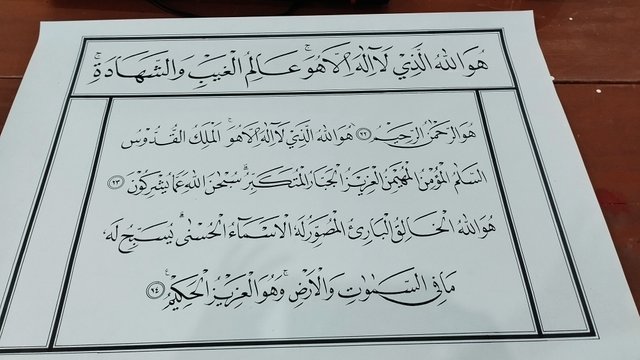 هُوَ اللهُ الَّذِيْ لَا اِلٰهَ اِلَّا هُوَ ۚ عَالِمُ الْغَيْبِ وَالشَّهَادَةِ ۚ
هُوَ الرَّحْمٰنُ الرَّحِيْمُ ﴿٢٢﴾ هُوَ اللهُ الَّذِيْ لَا اِلٰهَ اِلَّا هُوَ ۚ الْمَلِكُ الْقُدُّوْسُ
السَّلٰمُ الْمُؤْمِنُ الْمُهَيْمِنُ الْعَزِيْزُ الْجَبَّارُ الْمُتَكَبِّرُ ۗ سُبْحٰنَ اللهِ عَمَّا يُشْرِكُوْنَ ﴿٢٣﴾
هُوَ اللهُ الْخَالِقُ الْبَارِئُ الْمُصَوِّرُ لَهُ الْاَسْمَاۤءُ الْحُسْنٰى ۗ يُسَبِّحُ لَهٗ
مَا فِى السَّمٰوٰتِ وَالْاَرْضِ ۚ وَهُوَ الْعَزِيْزُ الْحَكِيْمُ ﴿٢٤﴾